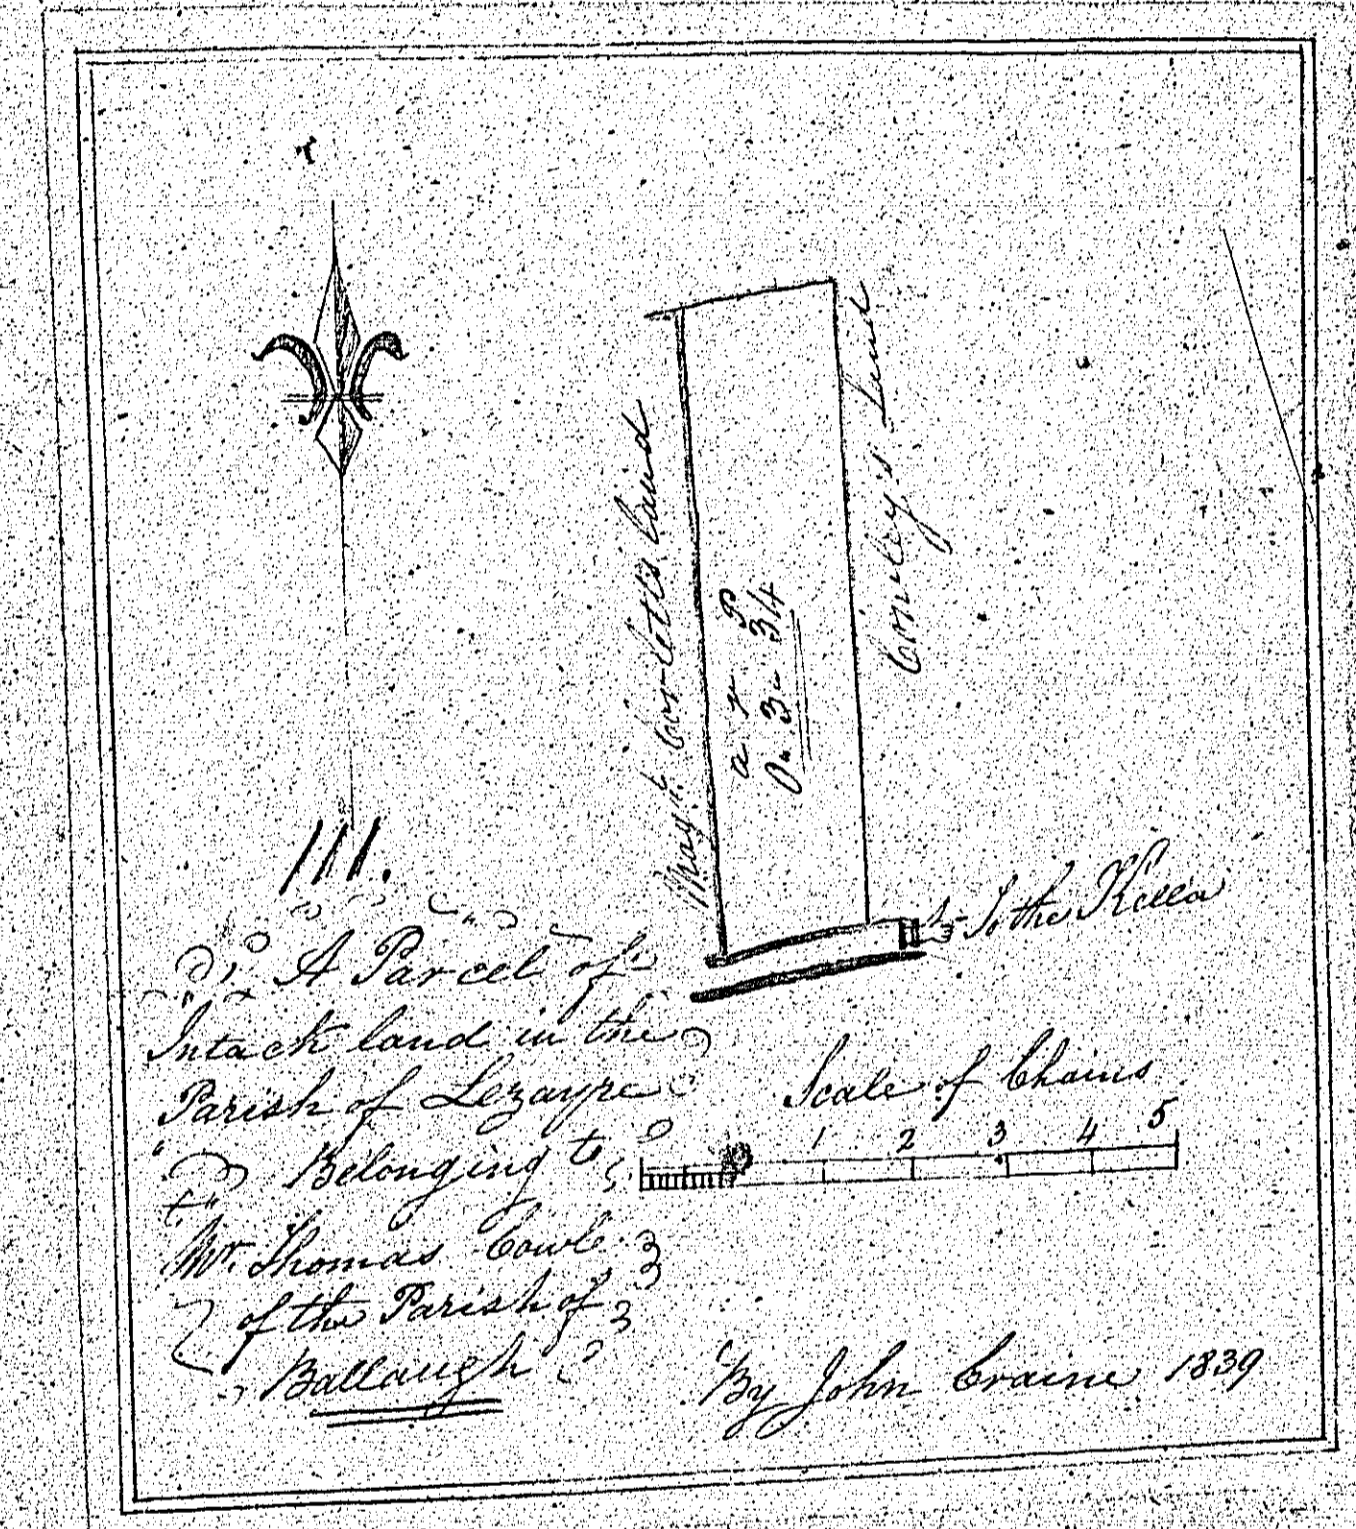 Margt. Corlett's land
Conley's Land
a r P
0 " 3 " 34
To the Killa
111.
A Parcel of
Intack land in the
Parish of Lezayre
Belonging to
Mr. Thomas Cowle
of the Parish of
Ballaugh
Scale of Chains
0 1 2 3 4 5
By John Craine 1839